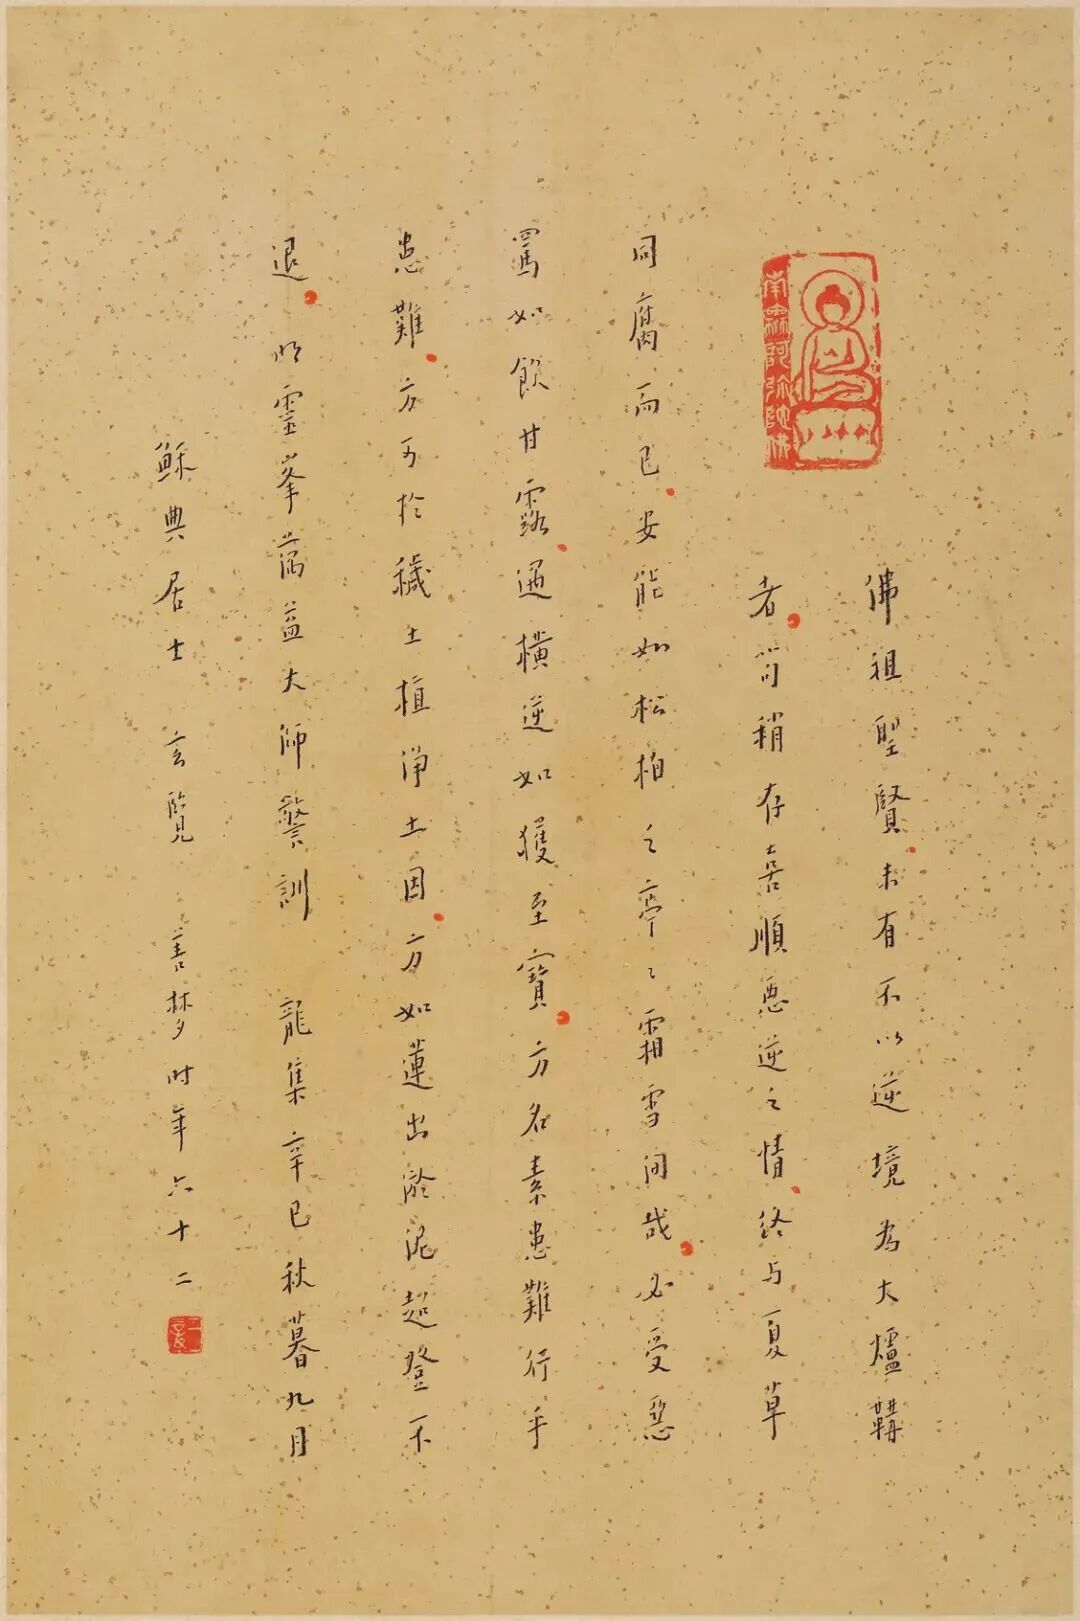 南無阿弥陀佛
佛祖聖賢未有不以逆境為大爐鞲
者苟稍存喜順惡逆之情終与夏草
同腐而已安能如松柏之亭〻霜雪间哉必受惡
罵如飲甘露遇橫逆如獲至寶方名素患難行乎
患難方可於穢土植净土因方如蓮出淤泥超登不
退 明靈峯蕅益大師警訓 龍集辛巳秋暮九月
穌典居士 玄覽 善夢时年六十二